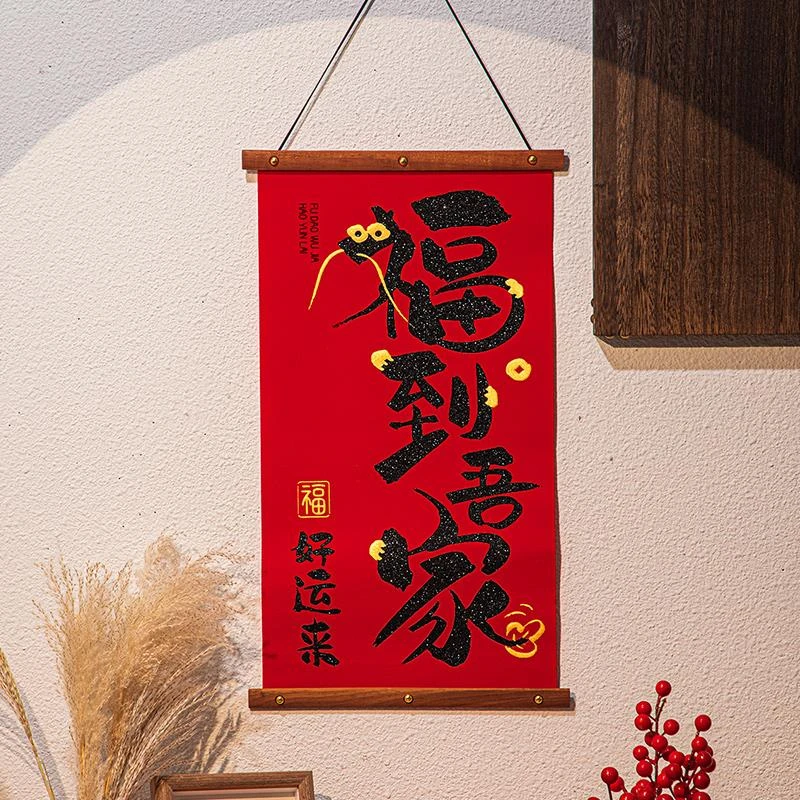 福到吾家
FU DAO WU JIA
HAO YUN LAI
福
好运来